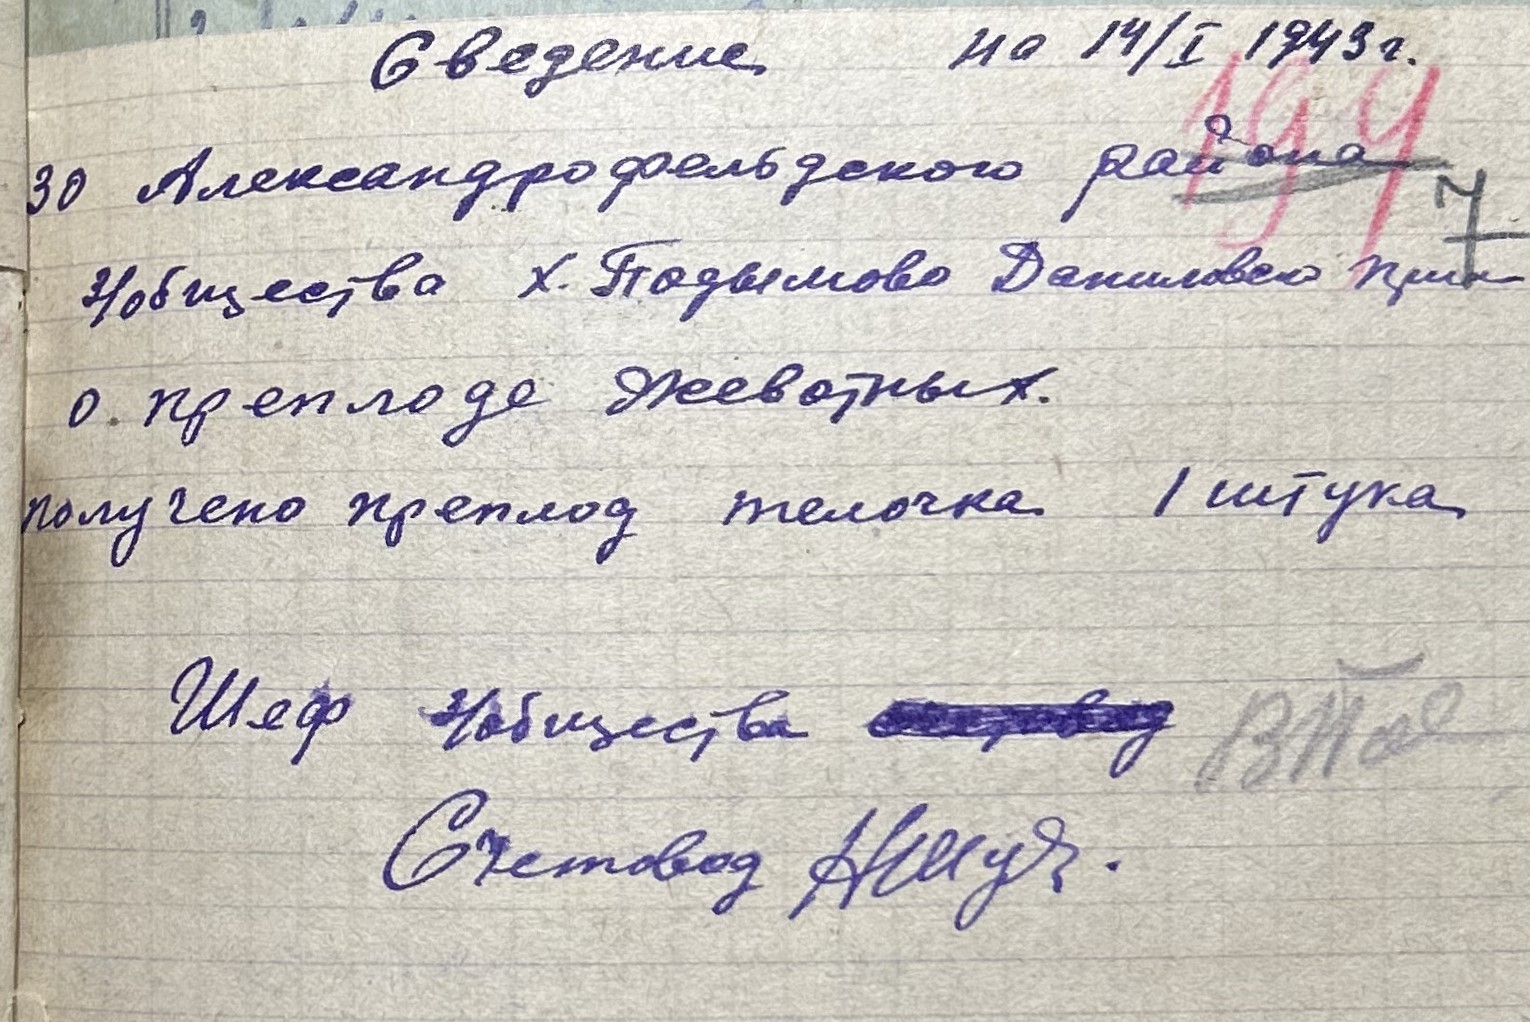 Сведение на 14/I 1943 г.
194
30 Александрофельдского района
7
з/общества х. Подымово Даниловско
о преплоде жевотных.
получено преплод телочка 1 штука
Шеф з/общества
Счетовод